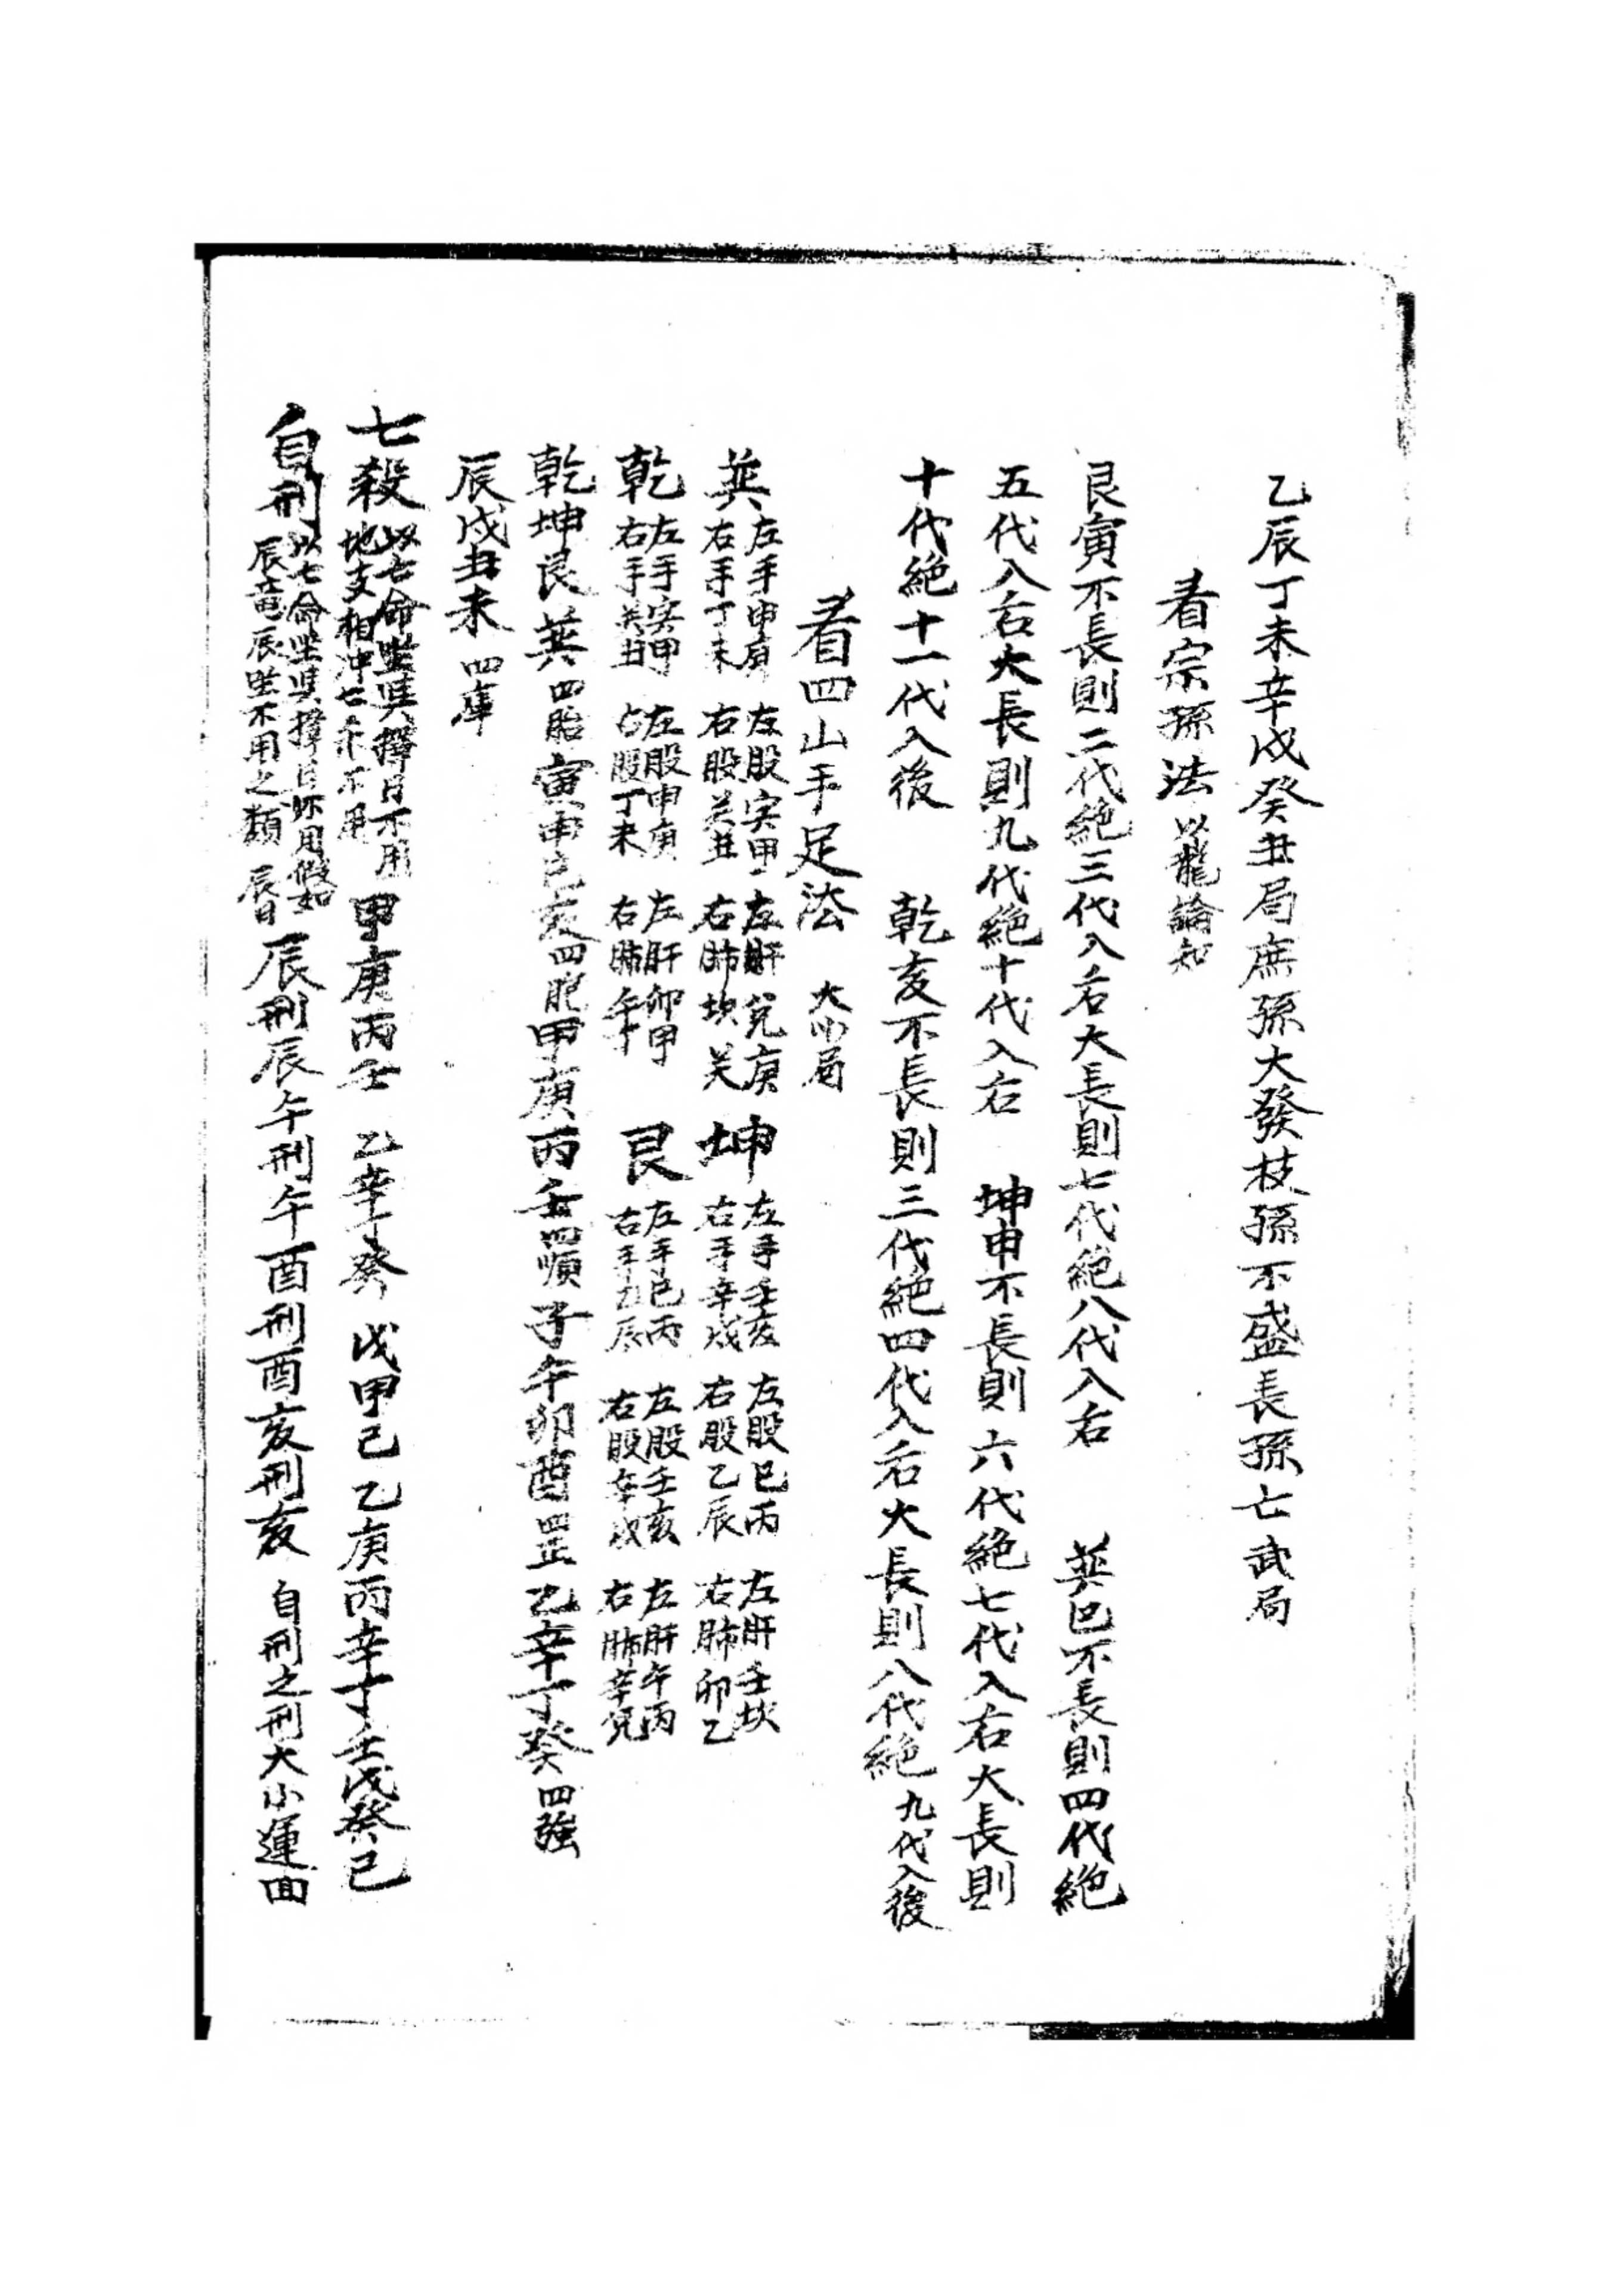 乙辰丁未辛戌癸丑局庶孫大發枝孫不盛長孫亡武局
看宗孫法 以龍論知
艮寅不長則二代絶三代入后大長則七代絶八代入右 巽巳不長則四代絶
五代入右大長則九代絶十代入右 坤申不長則六代絶七代入右大長則
十代絶十一代入後 乾亥不長則三代絶四代入后大長則八代絶九代入後
看四山手足法 大局
巽 左手申庚 右手丁未 左股寅甲 右股癸丑 左肝兌庚 右肺坎癸 坤 左手壬亥 右手辛戌 左股巳丙 右股乙辰 左肝壬坎 右肺卯乙
乾 左手寅甲 右手癸丑 左股申庚 右股丁未 左肝卯甲 右肺午丁 艮 左手巳丙 右手乙辰 左股壬亥 右股辛戌 左肝午丙 右肺辛兌
乾坤艮巽四胎寅申巳亥四胞甲庚丙壬四順子午卯酉四正乙辛丁癸四強
辰戌丑未四庫
七殺 以亡命坐與擇日不用 地支相冲七亦不用 甲庚丙壬 乙辛丁癸 戊甲己乙庚丙辛丁壬戊癸己
自刑 以亡命坐與擇日不用假如 辰竜辰坐不用之類 辰日 辰刑辰午刑午酉刑酉亥刑亥 自刑之刑大小運回